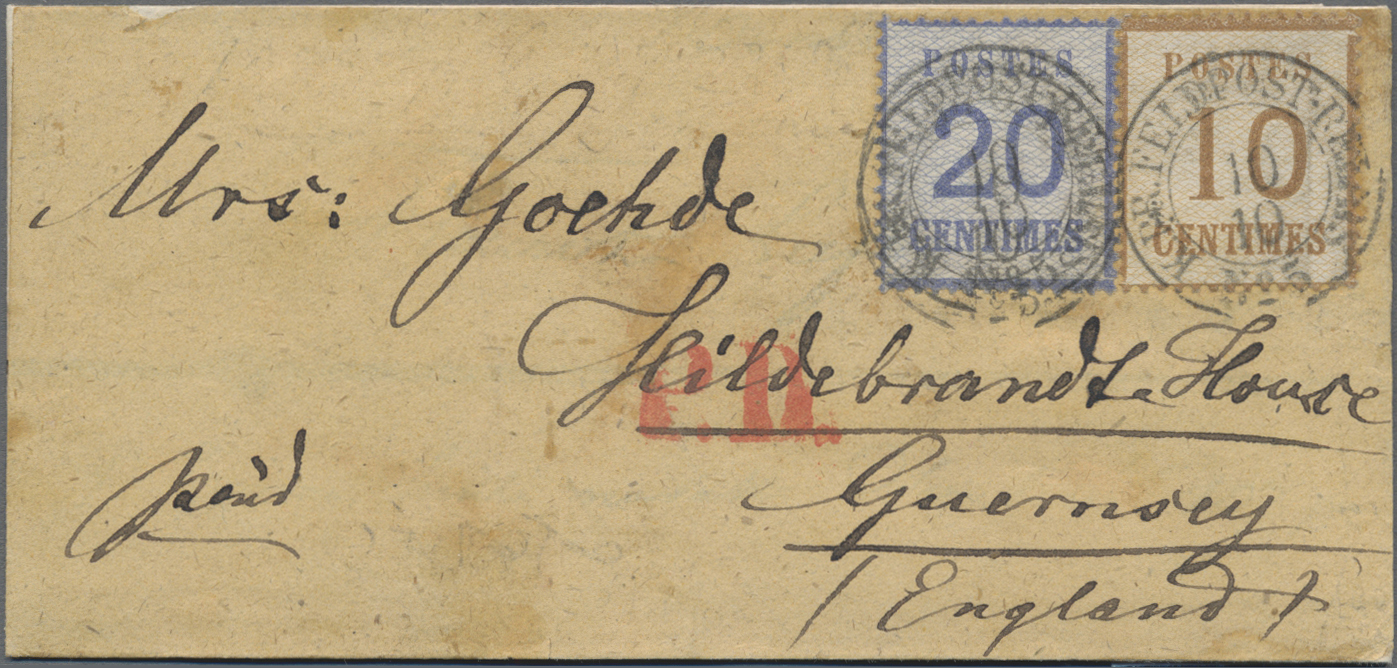 POSTES
20
CENTIMES
POSTES
10
CENTIMES
K. PR. FELDPOST-RELAIS
10
10
No 5
K. PR. FELDPOST-RELAIS
10
10
No 5
Mrs: Goehde
Hildebrandt House
P.D.
paid
Guernsey
(England)